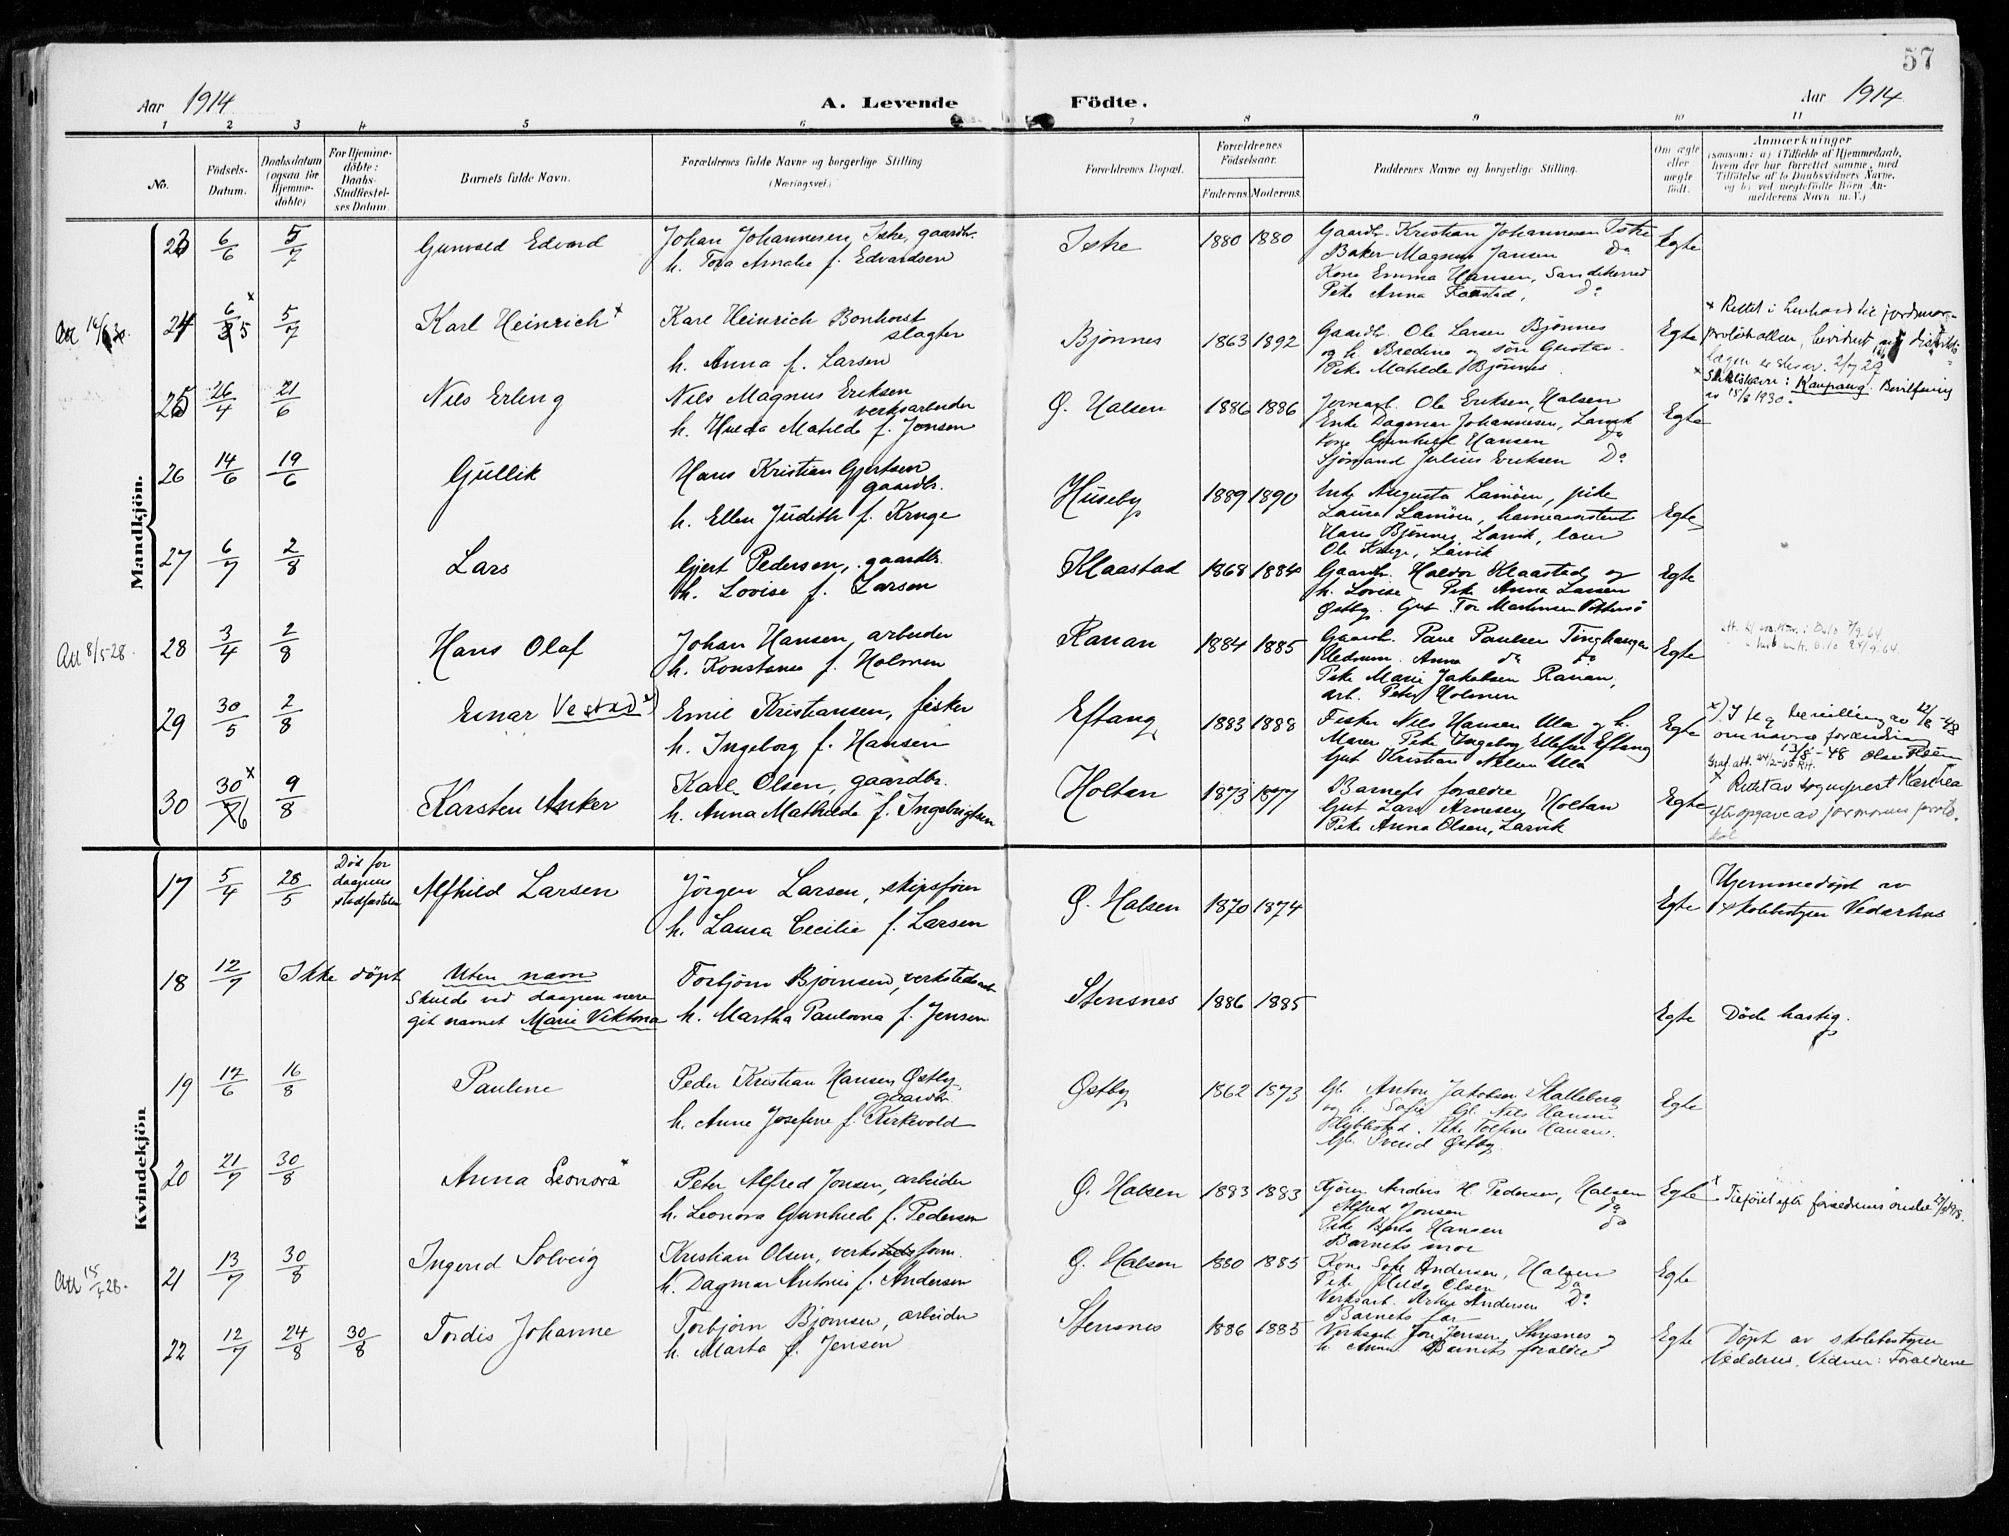 57
Aar 1914
A. Levende Födte.
Aar 1914
1 2 3 4 5 6 7 8 9 10 11
No.
Födsels-Datum.
Daabsdatum (ogsaa for Hjemme-döbte)
For Hjemme-döbte: Daabs-Stadfæstel-ses Datum.
Barnets fulde Navn.
Forældrenes fulde Navne og borgerlige Stilling
(Næringsvei.)
Forældrenes Bopæl.
Forældrenes Födselsaar.
Faderens. Moderens.
Faddernes Navne og borgerlige Stilling.
Om ægte eller uægte födt.
Anmærkninger
(saasom: a) i Tilfælde af Hjemmedaab,
hvem der har forrettet samme, med
Tilföielse af to Daabsvidners Navne,
og b) ved uegtefödte Börn An-
melderens Navn m. V.)
Mandkjön.
23 6/6 5/7 Gunvald Edvard
Johan Johannesen, Istre, gaardbr.
h. Tora Amalie f. Edvardsen
Istre 1880 1880
Gaardb. Kristian Johannesen Istre
Baker Magnus Jansen Do
Kone Emma Hansen, Sandeherred
Pike Anna do
Egte
24 6/5 x 5/7 Karl Heinrich x
Karl Heinrich Bonhorst
slagter
h. Anna f. Larsen
Bjønnes 1863 1892
Gaardb. Ole Larsen Bjønnes
og h. Bredine og søn Gustav.
Pike Matilde Bjønnes.
Egte
x Rettet i henhold til jordmor-
protokollen, 2/7 29
x Slektsnavn: Kaupang. Bevilling
av 15/8 1930.
25 26/4 21/6 Nils Erling
Nils Magnus Eriksen
verksarbeider
h. Hulda Matilde f. Jonsen
Ø. Halsen 1886 1886
Jernarb. Ole Eriksen, Halsen
Enke Dagmar Johannesen, Larvik
Kone Gunhild Hansen Do
Sjømand Julius Eriksen Do
Egte
26 14/6 19/6 Gullik
Hans Kristian Gjertsen
gaardbr.
h. Ellen Judith f. Kruge
Huseby 1889 1890
Enke Augusta Lamøen, pike
Laura Lamøen,
Hans Bjønnes, Larvik,
Ole Kruge, Larvik
Egte
27 6/7 2/8 Lars
Gjert Pedersen, gaardbr.
h. Lovise f. Larsen
Klaastad 1868 1884
Gaardb. Haldor Klaastad og
h. Lovise Pike Anna Larsen
Østby. Gut Tor Martinsen
Egte
Att 8/5-28
28 3/4 2/8 Hans Olaf
Johan Hansen, arbeider
h. Konstanse f. Holmen
Ranan 1884 1885
Gaardb. Paul Paulsen Tinghaugen
Hedrum. Anna do do
Pike Marie Jakobsen Ranan,
arb. Peter Holmen
Egte
29 30/5 2/8 Einar Vestad x)
Emil Kristiansen, fisker
h. Ingeborg f. Hansen
Eftang 1883 1888
Fisker Nils Hansen Ula og h.
Maren Pike Ingeborg Ellefsen Eftang
Gut Kristian Nilsen Ula
Egte
x). Iflg bevilling av 12/8-48
om navneforandring
13/8-48
30 30/6 x 9/8 Karsten Anker
Karl Olsen, gaardbr.
h. Anna Mathilde f. Ingebrigtsen
Holtan 1873 1877
Barnets foraldre
Gut Lars Arnesen Holtan
Pike Anna Olsen, Larvik
Egte
x Rettet av sogneprest
efter opgave av jormorens proto-
kol
Kvindekjön
17 5/4 28/5 Död for daapens stadfæstelse
Alfhild Larsen
Jörgen Larsen, skipsförer
h. Laura Cecilie f. Larsen
Ø. Halsen 1870 1874
Egte
Hjemmedöpt av
skolebestyrer Vedarhus
18 12/7 Ikke döpt
Uten navn
skulde ved daapen være
git navnet Marie Viktoria
Torbjörn Bjørnsen, verkstedsarb
h. Martha Paulovna f. Jensen
Stensnes 1886 1885
Egte
Døde hastig.
19 17/6 16/8 Pauline
Peder Kristian Hansen Østby
gaardbr.
h. Anne Josefine f. Kirkevold
Østby 1862 1873
Gb. Anton Jakobsen Skalleberg
og h. Sofie Gb. Nils Hansen
Pike Hansen.
Gb. Svend Østby
Egte
20 21/7 30/8 Anna Leonora x
Peter Alfred Jonsen, arbeider
h. Leonora Gunhild f. Pedersen
Ø. Halsen 1883 1883
Anders H. Pedersen, Halsen
Alfred Jonsen do
Pike Berta Hansen do
Barnets mor
Egte
x. Tilföiet efter foraldrenes önske
21 13/7 30/8 Ingerid Solveig
Kristian Olsen, verksform.
h. Dagmar Antonie f. Andersen
Ø. Halsen 1880 1885
Kone Sofie Andersen, Halsen
Pike Hilda Olsen Do
Verksarb. Artur Andersen Do
Barnets far
Egte
22 12/7 24/8 30/8 Tordis Johanne
Torbjörn Bjørnsen, arbeider
h. Marta f. Jensen
Stensnes 1886 1885
Verksarb Jon Jensen, Stensnes og
h. Anna Barnets foraldre
Egte
Döpt av skolebestyrer
Vedarhus, Vidner: Foraldrene